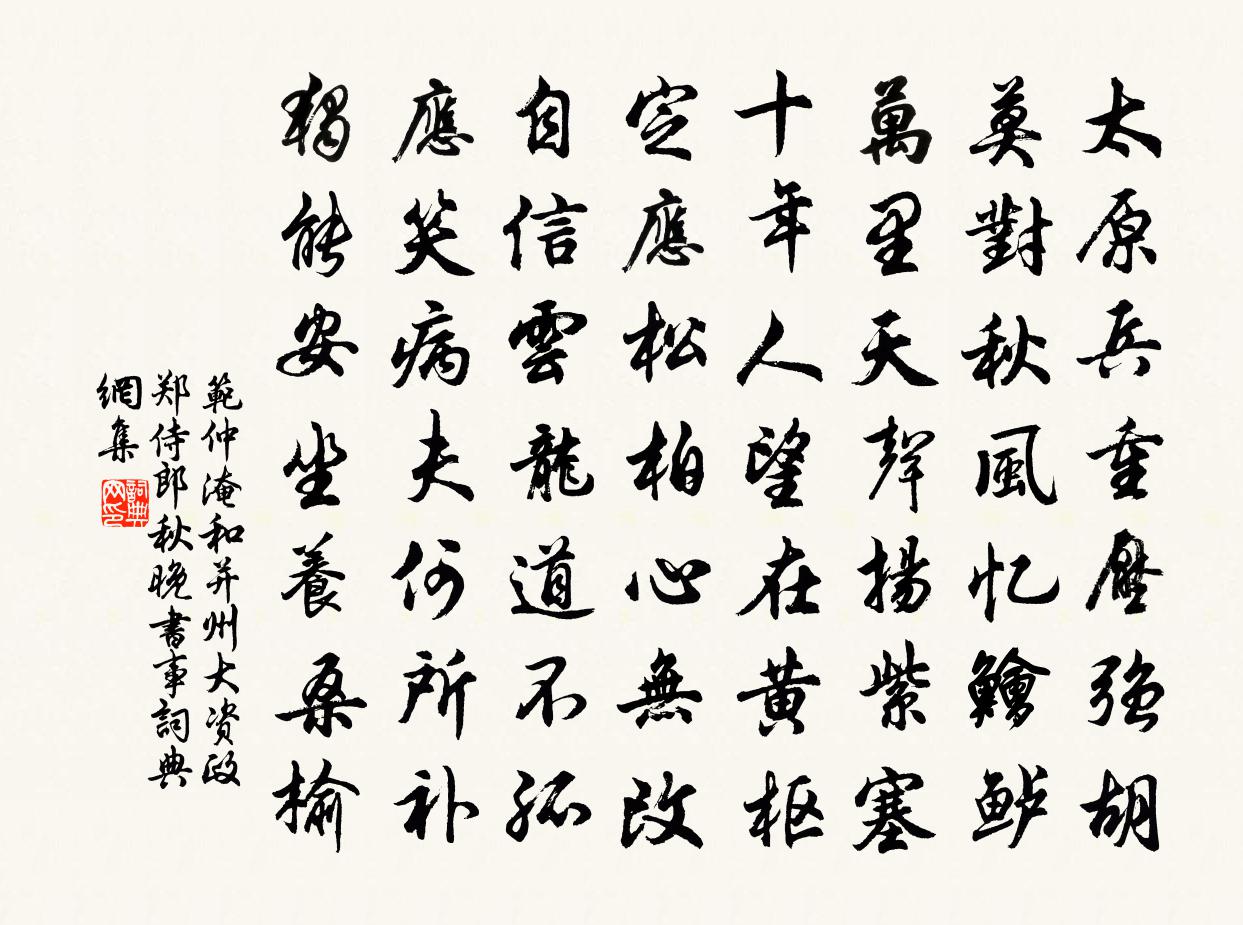 太原兵重壓强胡
莫對秋風忆鱠鲈
萬里天聲揚紫塞
十年人望在黄枢
定應松柏心無改
自信雲龍道不孤
應笑病夫何所补
獨能安坐養桑榆
範仲淹和并州大资政
郑侍郎秋晚書事詞典
網集
詞典
网印